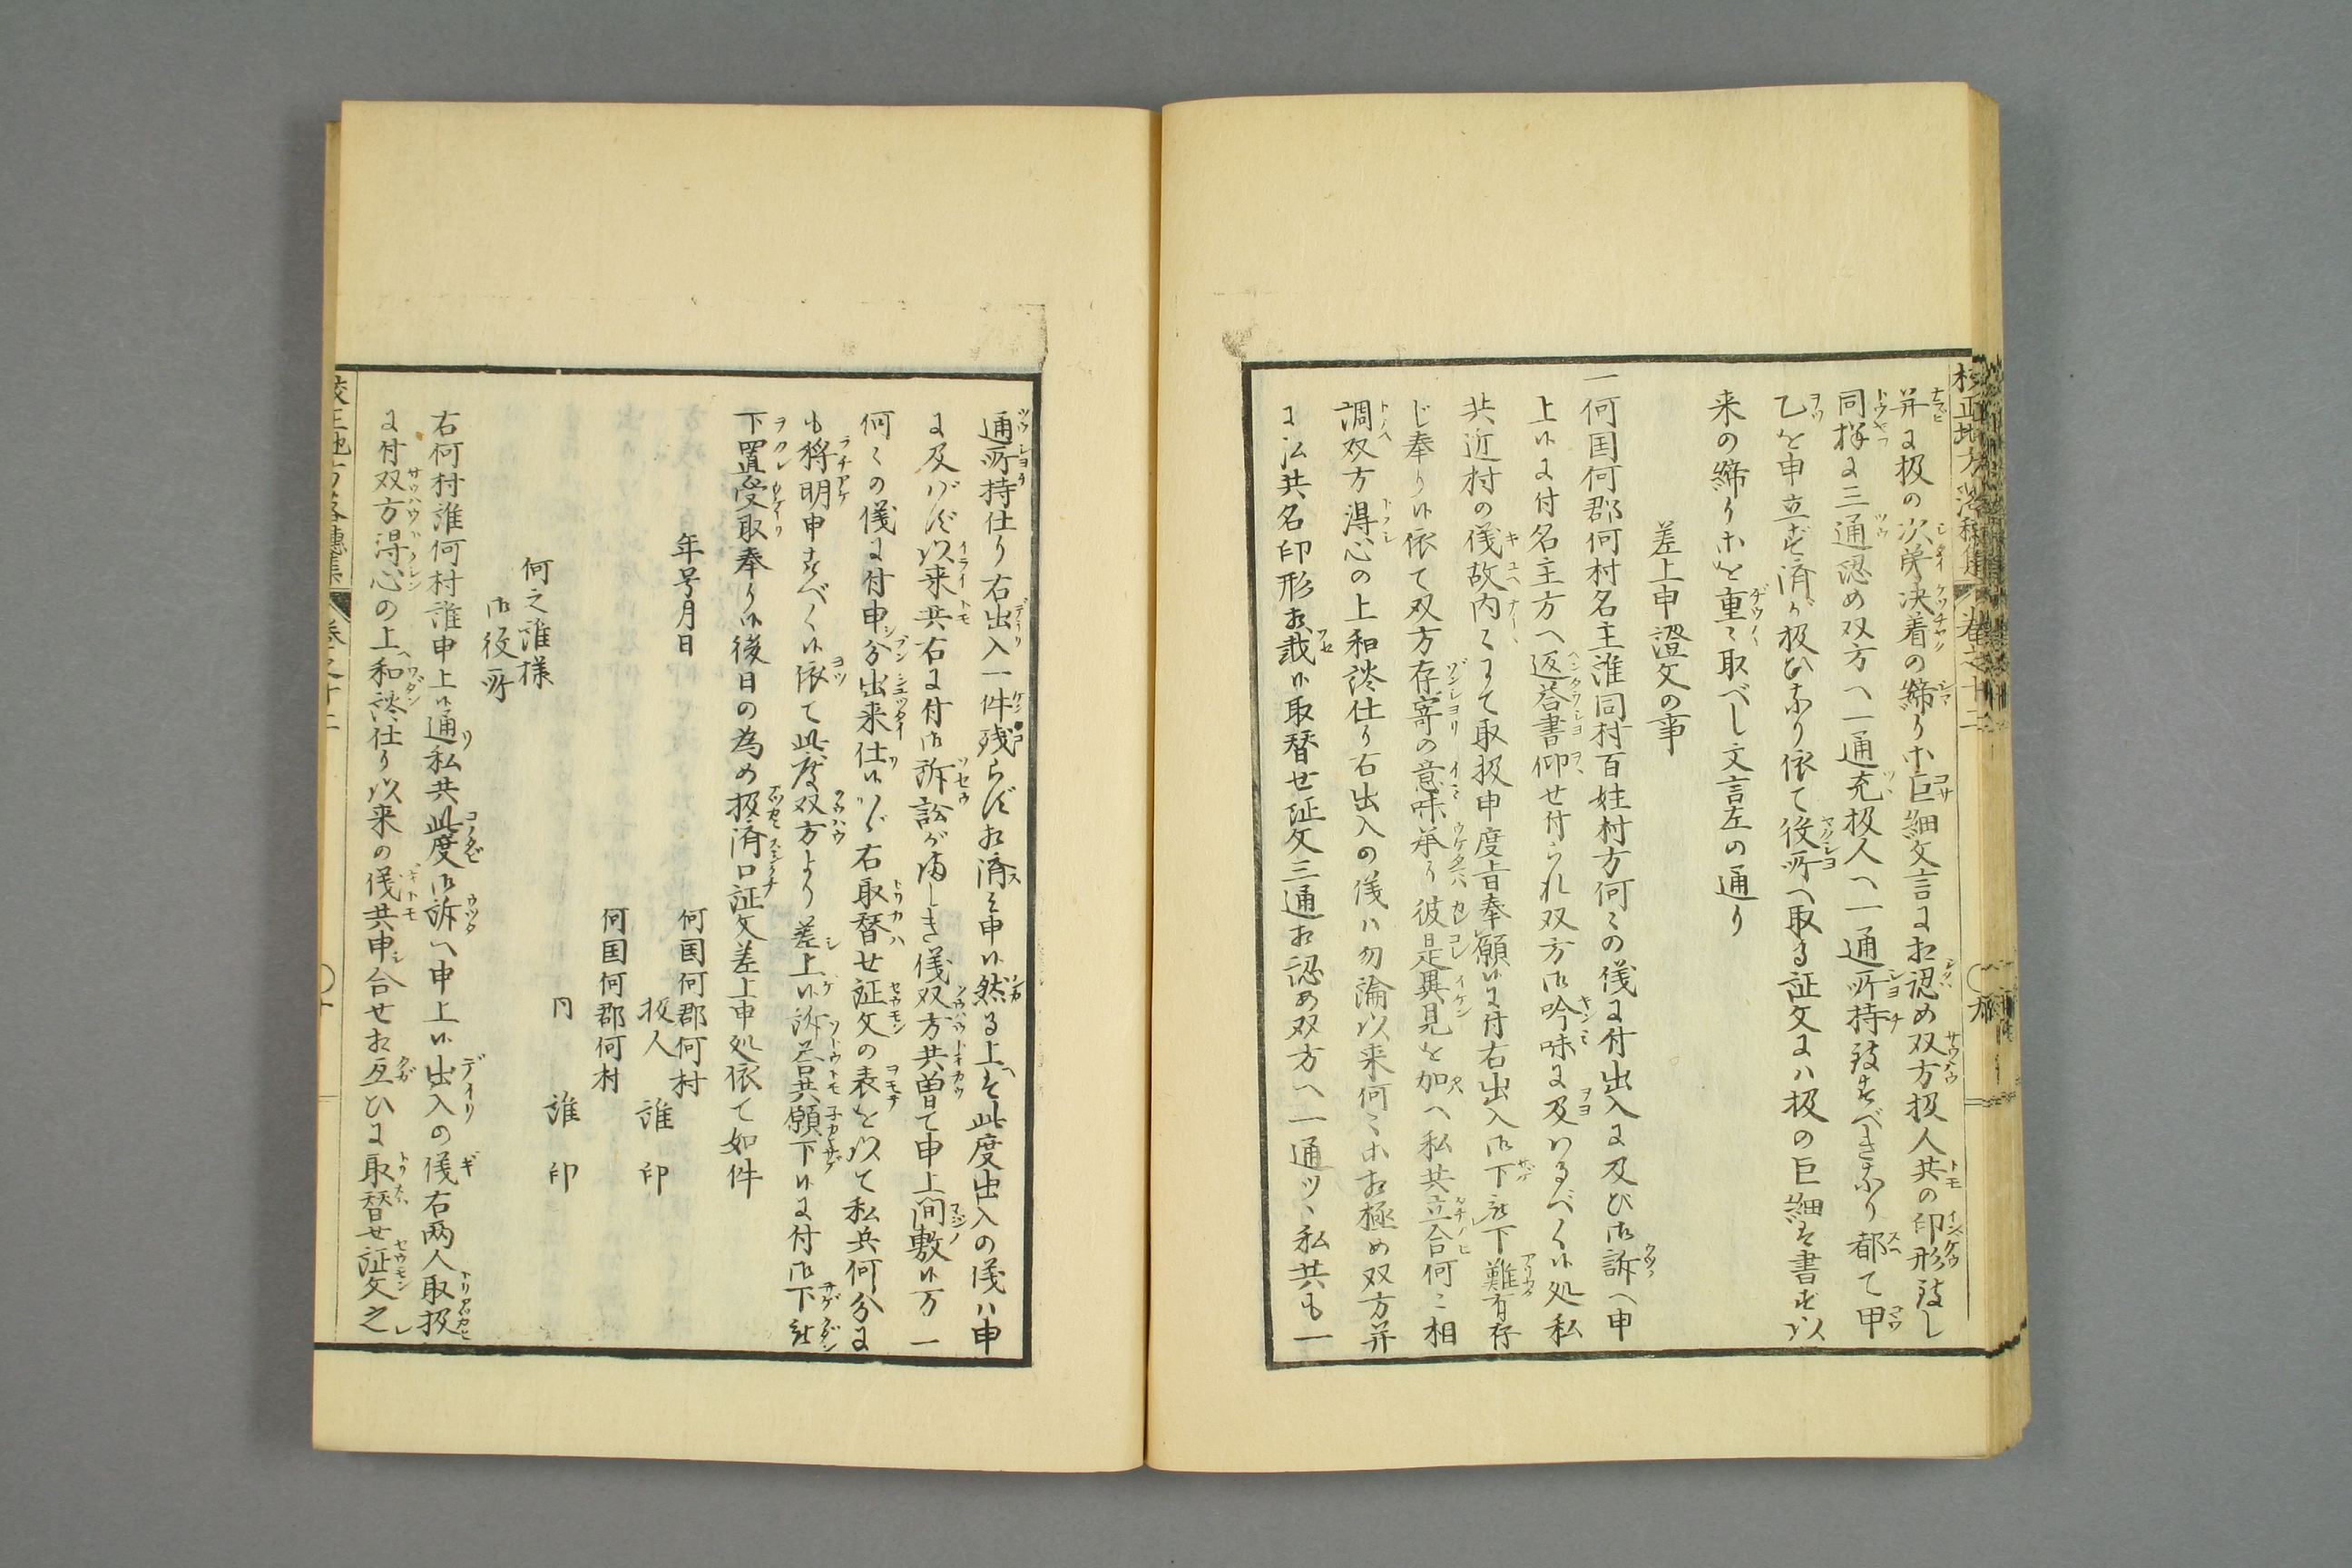 校正地方落穂集 巻之十二
并に扱の次第決着の締り等巨細文言に相認め双方扱人共の印形致し
同様に三通認め双方へ一通充扱人へ一通所持致すべきなり都て甲
乙を申立ず済が扱ひなり依て役所へ取る証文には扱の巨細を書ず以
来の締り等を重々取べし文言左の通り
差上申證文の事
一何国何郡何村名主誰同村百姓村方何々の儀に付出入に及び御訴へ申
上候に付名主方へ返答書仰せ付られ双方御吟味に及わるべく候処私
共近村の儀故内々にて取扱申度旨奉願候に付右出入御下被下難有存
じ奉り候依て双方存寄の意味承り彼是異見を加へ私共立合何々相
調双方得心の上和談仕り右出入の儀ハ勿論以来何々等相極め双方并
に私共名印形相載候取替せ証文三通相認め双方へ一通ツヽ私共も一
通所持仕り右出入一件残らず相済み申候然る上ハ此度出入の儀ハ申
に及バず以来共右に付御訴訟がましき儀双方共曽て申上間敷候万一
何々の儀に付申分出来仕候ハヾ右取替せ証文の表を以て私共何分に
も埒明申すべく候依て此度双方より差上候訴答共願下候に付御下被
下置受取奉り候後日の為め扱済口証文差上申処依て如件
年号月日
何国何郡何村
扱人 誰 印
何国何郡何村
同 誰 印
何之誰様
御役所
右何村誰何村誰申上候通り私共此度御訴へ申上候出入の儀右両人取扱
に付双方得心の上和談仕り以来の儀共申合せ相互ひに取替せ証文之
校正地方落穂集 巻之十二